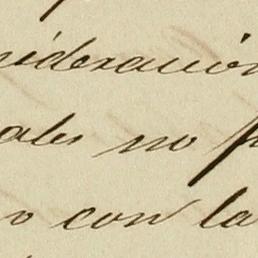 ideración
ales no
o con la